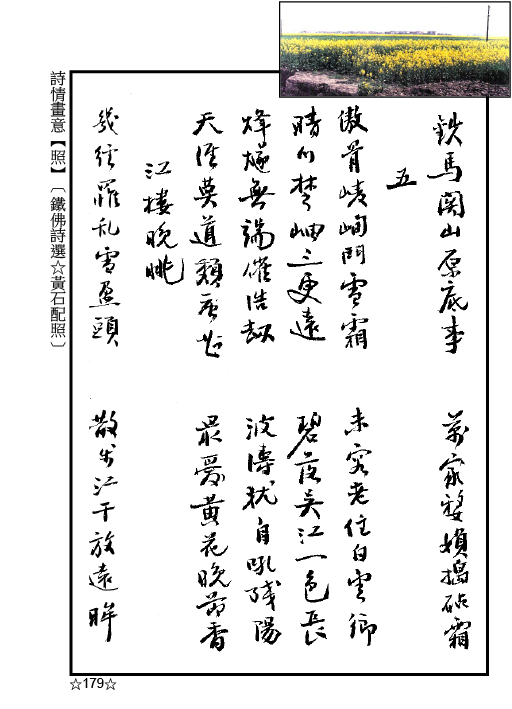 鉄馬関山原底事 萬家嫠媍搗砧霜
五
傲骨崚峋鬥雪霜 未容老住白雲鄉
晴川楚岫三更遠 碧落吳江一色長
烽燧無端催浩劫 波濤犹自吼殘陽
天涯莫道頹唐甚 最愛黃花晚節香
江樓晚眺
幾經罹乱雪盈頭 散步江干放遠眸
詩情畫意【照】〔鐵佛詩選☆黃石配照〕
☆179☆